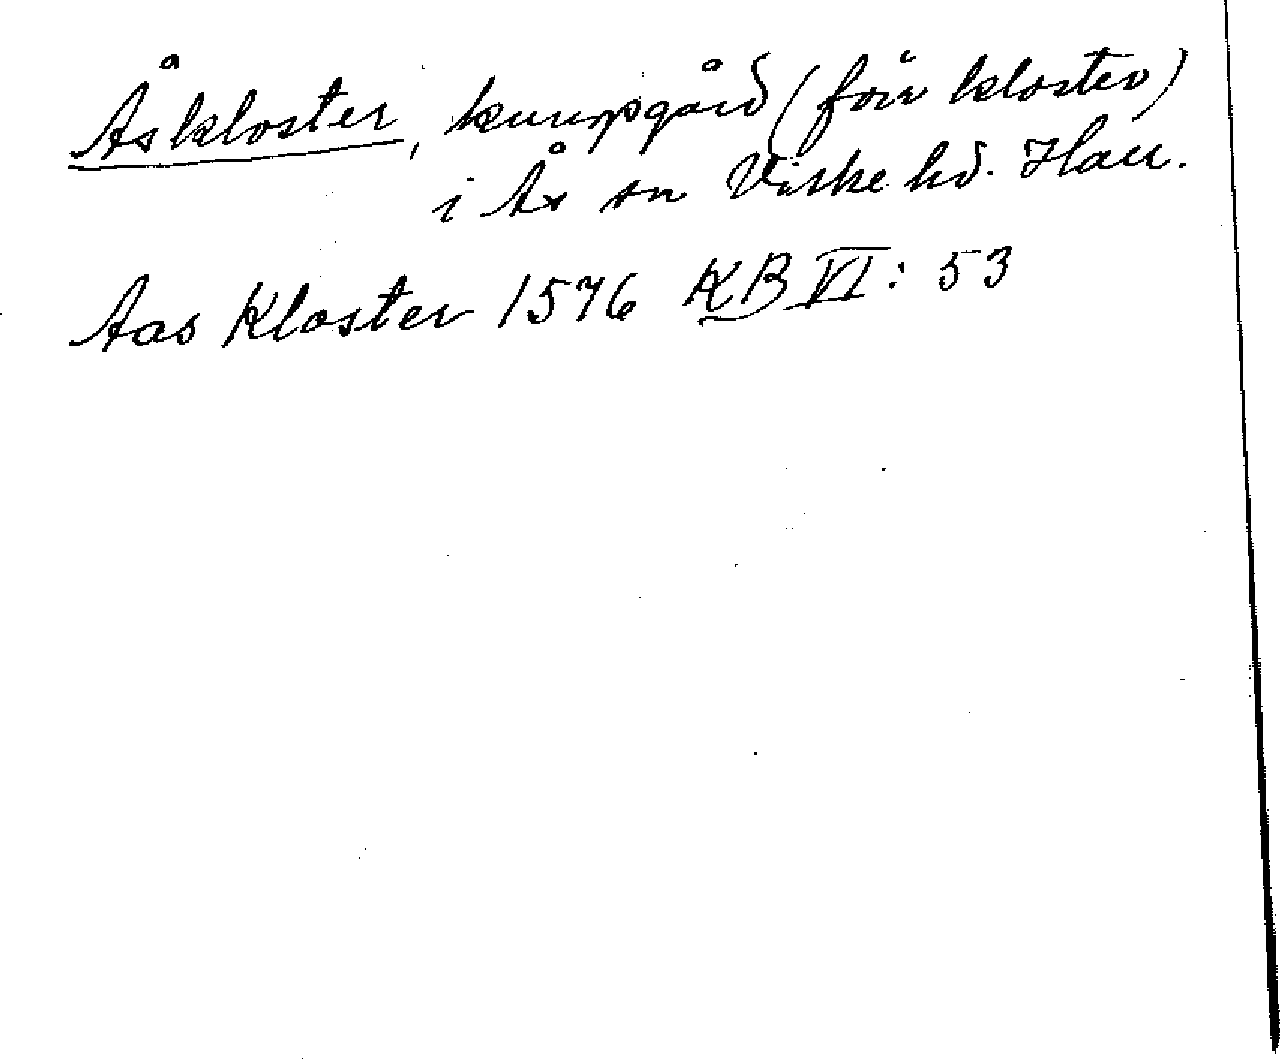 Åskloster, kungsgård (förr kloster)
i Ås sn Viske hd. Hall.
Aas Kloster 1576 KB VI: 53